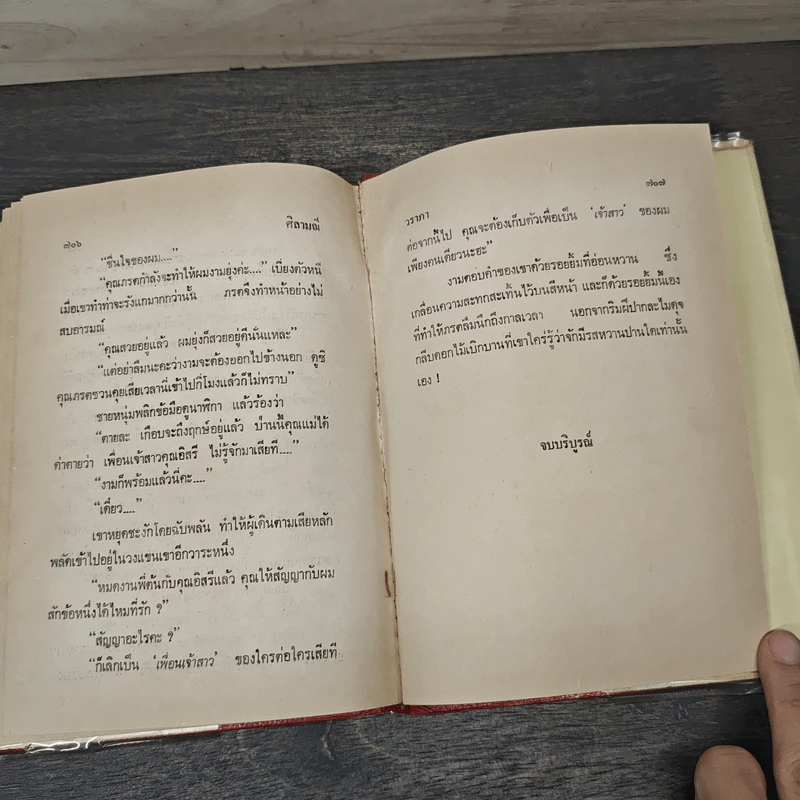 ๗๐๖
ศิลามณี
“ชื่นใจของผม....”
“คุณภรตกำลังจะทำให้ผมงามยุ่งค่ะ....” เบี่ยงตัวหนี
เมื่อเขาทำท่าจะรังแกมากกว่านั้น ภรตจึงทำหน้าอย่างไม่
สบอารมณ์
“คุณสวยอยู่แล้ว ผมยุ่งก็สวยอยู่ดีนั่นแหละ”
“แต่อย่าลืมนะคะว่างามจะต้องออกไปข้างนอก ดูซิ
คุณภรตชวนคุยเสียเวลานี่เข้าไปกี่โมงแล้วก็ไม่ทราบ”
ชายหนุ่มพลิกข้อมือดูนาฬิกา แล้วร้องว่า
“ตายละ เกือบจะถึงฤกษ์อยู่แล้ว ป่านนี้คุณแม่ได้
ด่าตายว่า เพื่อนเจ้าสาวคุณอิสรี ไม่รู้จักมาเสียที....”
“งามก็พร้อมแล้วนี่คะ....”
“เดี๋ยว....”
เขาหยุดชะงักโดยฉับพลัน ทำให้ผู้เดินตามเสียหลัก
พลัดเข้าไปอยู่ในวงแขนเขาอีกวาระหนึ่ง
“หมดงานพี่ต้นกับคุณอิสรีแล้ว คุณให้สัญญากับผม
สักข้อหนึ่งได้ไหมที่รัก ?”
“สัญญาอะไรคะ ?”
“ก็เลิกเป็น ‘เพื่อนเจ้าสาว’ ของใครต่อใครเสียที
วราภา
๗๐๗
ต่อจากนี้ไป คุณจะต้องเก็บตัวเพื่อเป็น ‘เจ้าสาว’ ของผม
เพียงคนเดียวนะฮะ”
งามตอบคำของเขาด้วยรอยยิ้มที่อ่อนหวาน ซึ่ง
เกลื่อนความสะทกสะเทิ้นไว้บนสีหน้า และก็ด้วยรอยยิ้มนี้เอง
ที่ทำให้ภรตลืมนึกถึงกาลเวลา นอกจากริมฝีปากละไมดุจ
กลีบดอกไม้เบิกบานที่เขาใคร่รู้ว่าจักมีรสหวานปานใดเท่านั้น
เอง !
จบบริบูรณ์